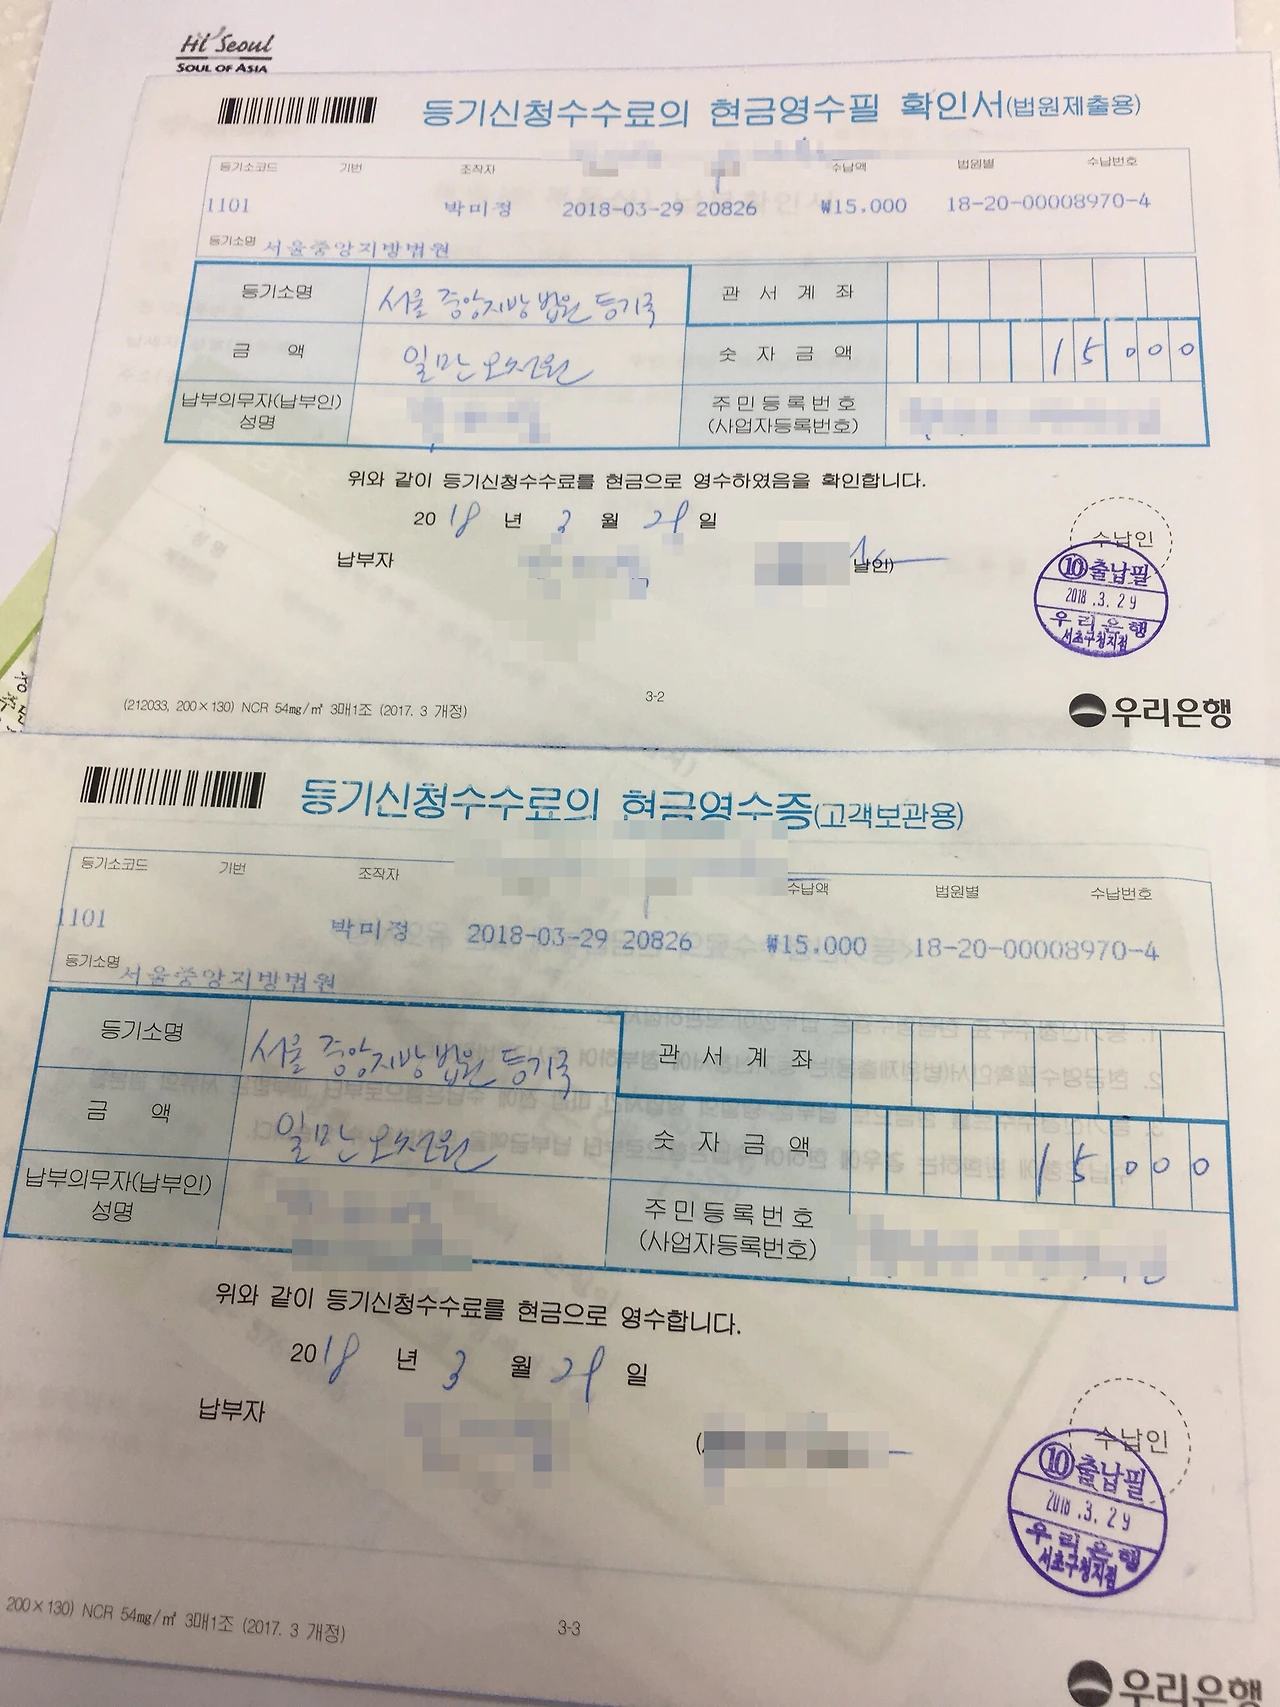 Hi Seoul
SOUL OF ASIA
등기신청수수료의 현금영수필 확인서(법원제출용)
등기소코드 기번 조작자 수납액 법원별 수납번호
1101 박미정 2018-03-29 20826 ₩15.000 18-20-00008970-4
등기소명 서울중앙지방법원
등기소명 서울 중앙지방법원 등기국 관서계좌
금 액 일만오천원 숫자금액 15000
납부의무자(납부인) 성명 주민등록번호 (사업자등록번호)
위와 같이 등기신청수수료를 현금으로 영수하였음을 확인합니다.
2018 년 3 월 29 일
납부자 날인)
수납인
⑩출납필
2018.3.29
우리은행
서초구청지점
(212033, 200×130) NCR 54㎎/㎡ 3매1조 (2017. 3 개정)
3-2
우리은행
등기신청수수료의 현금영수증(고객보관용)
등기소코드 기번 조작자 수납액 법원별 수납번호
1101 박미정 2018-03-29 20826 ₩15.000 18-20-00008970-4
등기소명 서울중앙지방법원
등기소명 서울 중앙지방법원 등기국 관서계좌
금 액 일만오천원 숫자금액 15000
납부의무자(납부인) 성명 주민등록번호 (사업자등록번호)
위와 같이 등기신청수수료를 현금으로 영수합니다.
2018 년 3 월 29 일
납부자
수납인
⑩출납필
2018.3.29
우리은행
서초구청지점
200×130) NCR 54㎎/㎡ 3매1조 (2017. 3 개정)
3-3
우리은행